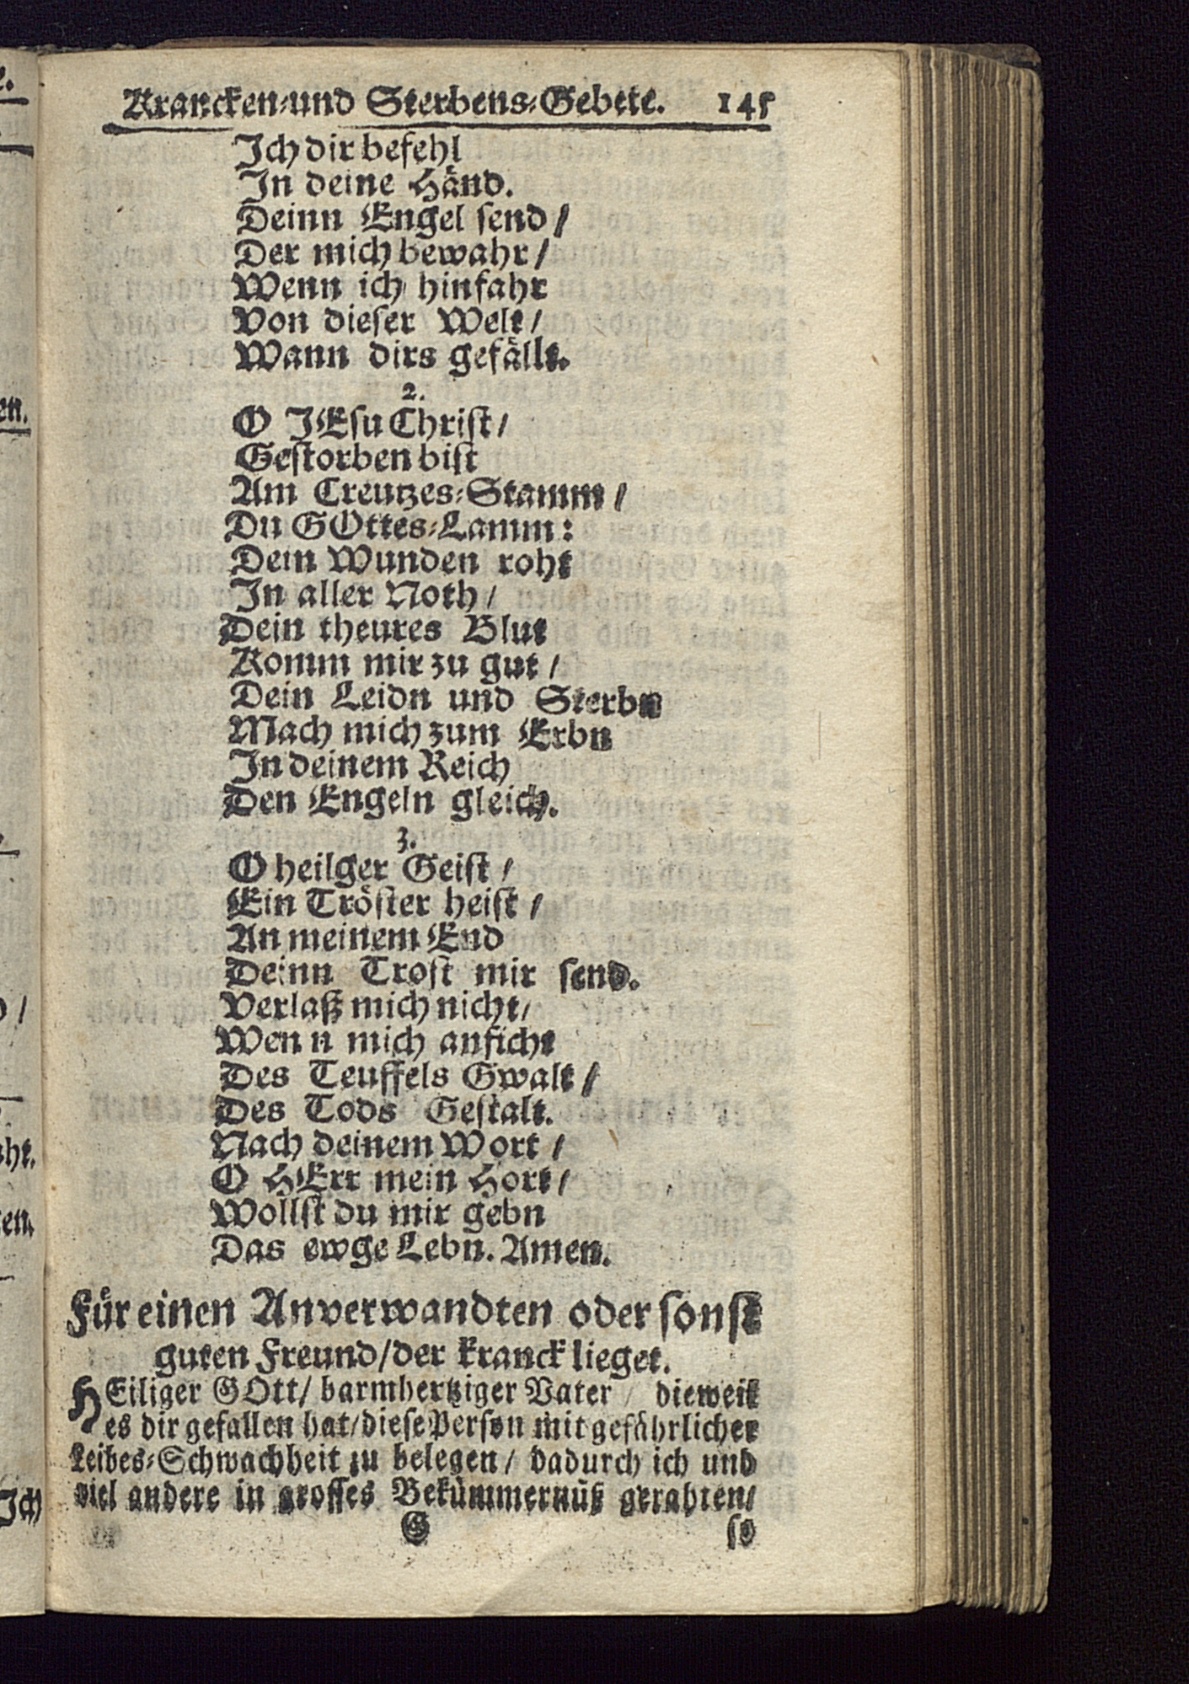 Krancken-und Sterbens-Gebete. 145
Ich dir befehl
In deine Händ.
Deinn Engel send/
Der mich bewahr/
Wenn ich hinfahr
Von dieser Welt/
Wann dirs gefällt.
2.
O JEsu Christ/
Gestorben bist
Am Creutzes-Stamm/
Du GOttes-Lamm:
Dein Wunden roht
In aller Noth/
Dein theures Blut
Komm mir zu gut/
Dein Leidn und Sterbn
Mach mich zum Erbn
In deinem Reich
Den Engeln gleich.
3.
O heilger Geist/
Ein Tröster heist/
An meinem End
Deinn Trost mir send.
Verlaß mich nicht/
Wenn mich anficht
Des Teuffels Gwalt/
Des Tods Gestalt.
Nach deinem Wort/
O HErr mein Hort/
Wollst du mir gebn
Das ewge Lebn. Amen.
Für einen Anverwandten oder sonst
guten Freund/der kranck lieget.
HEiliger GOtt/ barmhertziger Vater/ dieweil
es dir gefallen hat/diese Person mit gefährlicher
Leibes-Schwachheit zu belegen/ dadurch ich und
viel andere in grosses Bekümmernüß gerahten/
G so